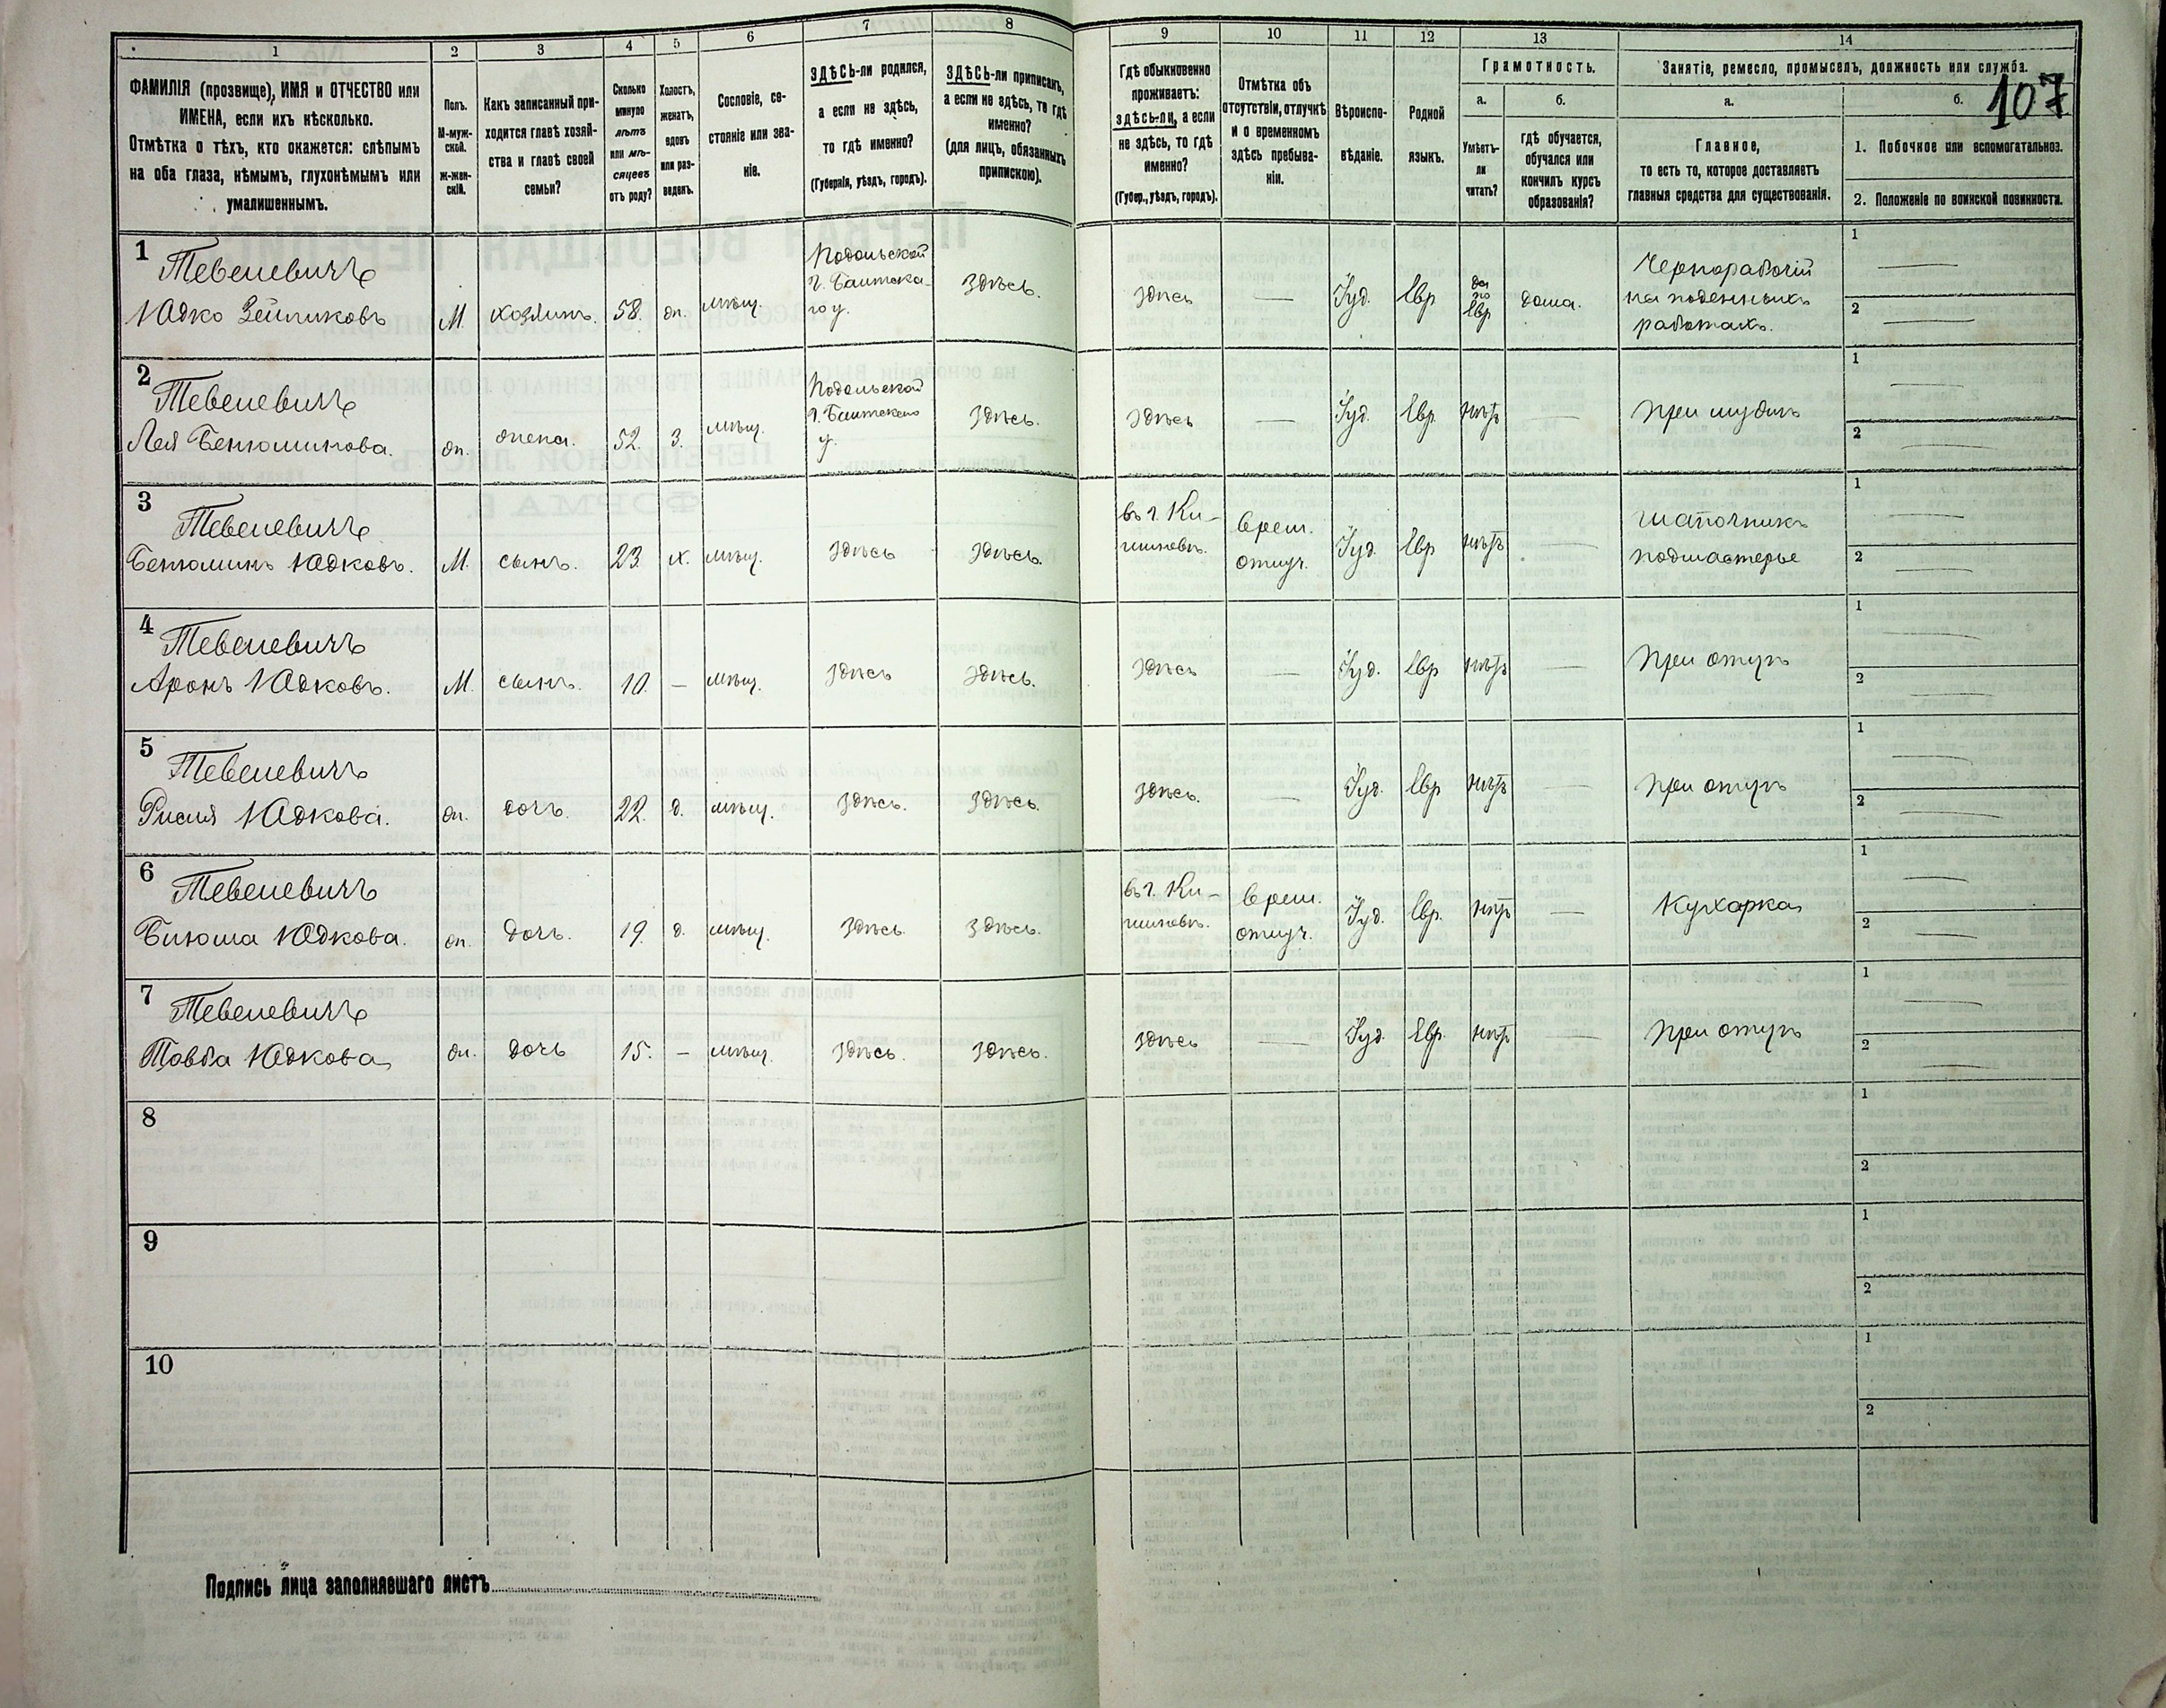 107
1 2 3 4 5 6 7 8 9 10 11 12 13 14
ФАМИЛІЯ (прозвище), ИМЯ и ОТЧЕСТВО или
ИМЕНА, если ихъ нѣсколько.
Отмѣтка о тѣхъ, кто окажется: слѣпымъ
на оба глаза, нѣмымъ, глухонѣмымъ или
умалишеннымъ.
Полъ.
М-муж-
ской.
Ж-жен-
скій.
Какъ записанный при-
ходится главѣ хозяй-
ства и главѣ своей
семьи?
Сколько
минуло
лѣтъ
или мѣ-
сяцевъ
отъ роду?
Холостъ,
женатъ,
вдовъ
или раз-
веденъ.
Сословіе, со-
стояніе или зва-
ніе.
ЗДѢСЬ-ли родился,
а если не здѣсь,
то гдѣ именно?
(Губернія, уѣздъ, городъ).
ЗДѢСЬ-ли приписанъ,
а если не здѣсь, то гдѣ
именно?
(для лицъ, обязанныхъ
припискою).
Гдѣ обыкновенно
проживаетъ:
здѣсь-ли, а если
не здѣсь, то гдѣ
именно?
(Губер., уѣздъ, городъ).
Отмѣтка объ
отсутствіи, отлучкѣ
и о временномъ
здѣсь пребыва-
ніи.
Вѣроиспо-
вѣданіе.
Родной
языкъ.
Грамотность.
а.
Умѣетъ-
ли
читать?
б.
гдѣ обучается,
обучался или
кончилъ курсъ
образованія?
Занятіе, ремесло, промыселъ, должность или служба.
а.
Главное,
то есть то, которое доставляетъ
главныя средства для существованія.
б.
1. Побочное или вспомогательное.
2. Положеніе по воинской повинности.
1
Тевелевичъ
Юдко Зейликовъ
М. хозяинъ. 58. ж. мѣщ.
Подольской
г. Балтска-
го у.
здѣсь. здѣсь — Іуд. Евр
да
по
Евр
дома.
Чернорабочій
на поденныхъ
работахъ.
1 —
2 —
2
Тевелевичъ
Лея Бенюминова.
ж. жена. 52. з. мѣщ.
Подольской
г. Балтскаго
у.
здѣсь. здѣсь — Іуд. Евр. нѣтъ — при мужѣ
1 —
2 —
3
Тевелевичъ
Бенюминъ Юдковъ.
М. сынъ. 23. х. мѣщ. здѣсь здѣсь.
въ г. Ки-
шиневѣ.
врем.
отлуч.
Іуд. Евр нѣтъ —
шапочникъ
подмастерье
1 —
2 —
4
Тевелевичъ
Аронъ Юдковъ.
М. сынъ. 10. — мѣщ. здѣсь здѣсь. здѣсь — Іуд. Евр нѣтъ — при отцѣ
1 —
2 —
5
Тевелевичъ
Юдкова.
ж. дочь. 22. д. мѣщ. здѣсь. здѣсь. здѣсь. — Іуд. Евр нѣтъ — при отцѣ
1 —
2 —
6
Тевелевичъ
Юдкова.
ж. дочь. 19. д. мѣщ. здѣсь. здѣсь.
въ г. Ки-
шиневѣ.
врем.
отлуч.
Іуд. Евр. нѣтъ — Кухарка
1 —
2 —
7
Тевелевичъ
Товба Юдкова
ж. дочь 15. — мѣщ. здѣсь. здѣсь. здѣсь — Іуд. Евр. нѣтъ — при отцѣ
1 —
2 —
8
1
2
9
1
2
10
1
2
Подпись лица заполнявшаго листъ